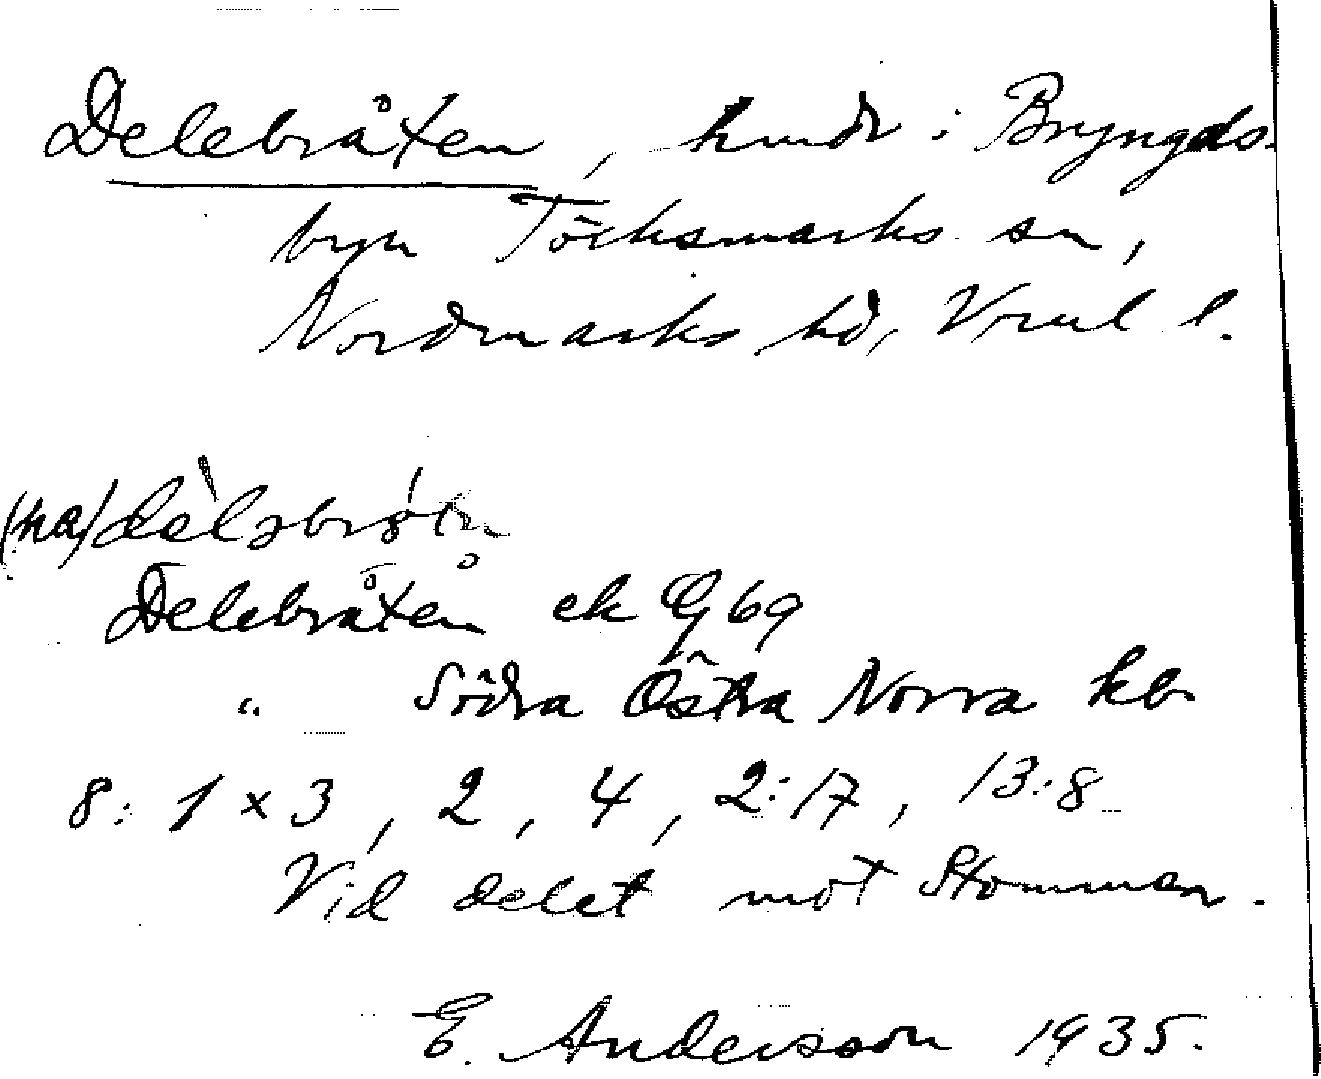 Delebråten, hmdr i Bryngels-
byn Töcksmarks sn,
Nordmarks hd, Vrml l.
(på) delsbrøtn
Delebråten ek G 69
" Södra Östra Norra kb
8: 1 x 3, 2, 4, 2:17, 13:8
Vid delet mot Stommen.
E. Andersson 1935.